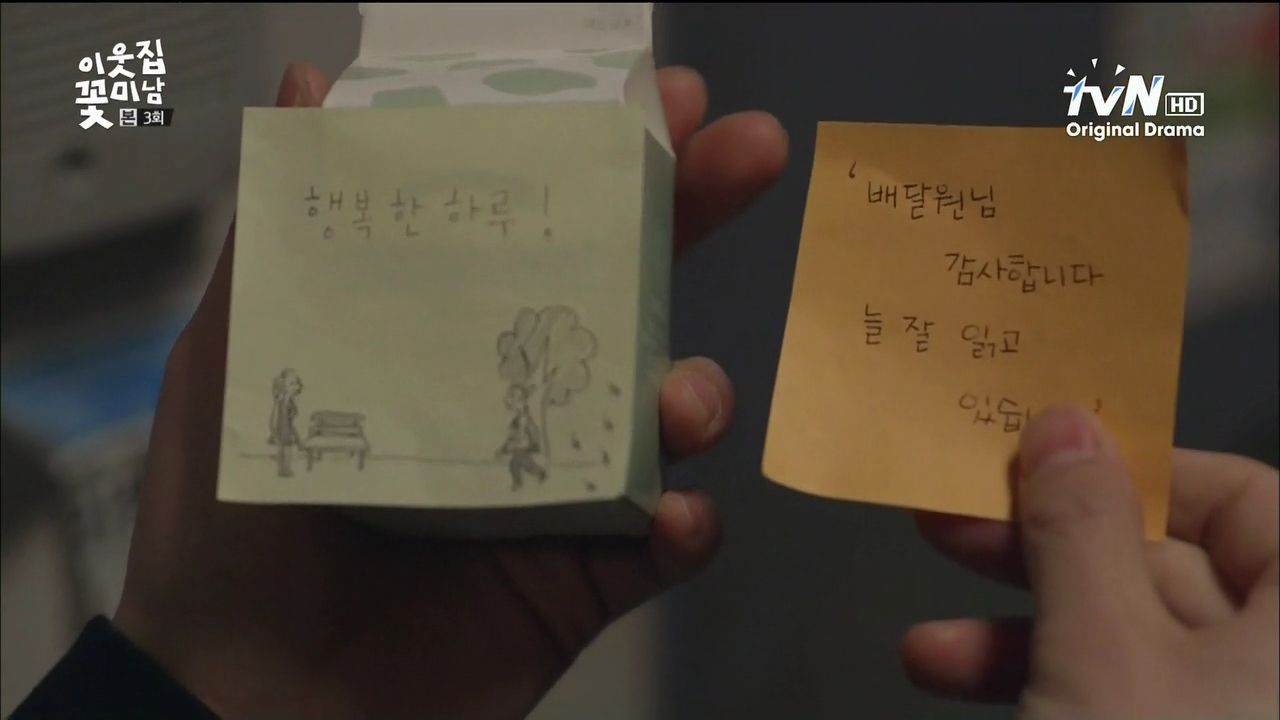 이웃집
꽃미남
본 3회
tvN HD
Original Drama
행복한 하루!
‘배달원님
감사합니다
늘 잘 읽고
있습 ’